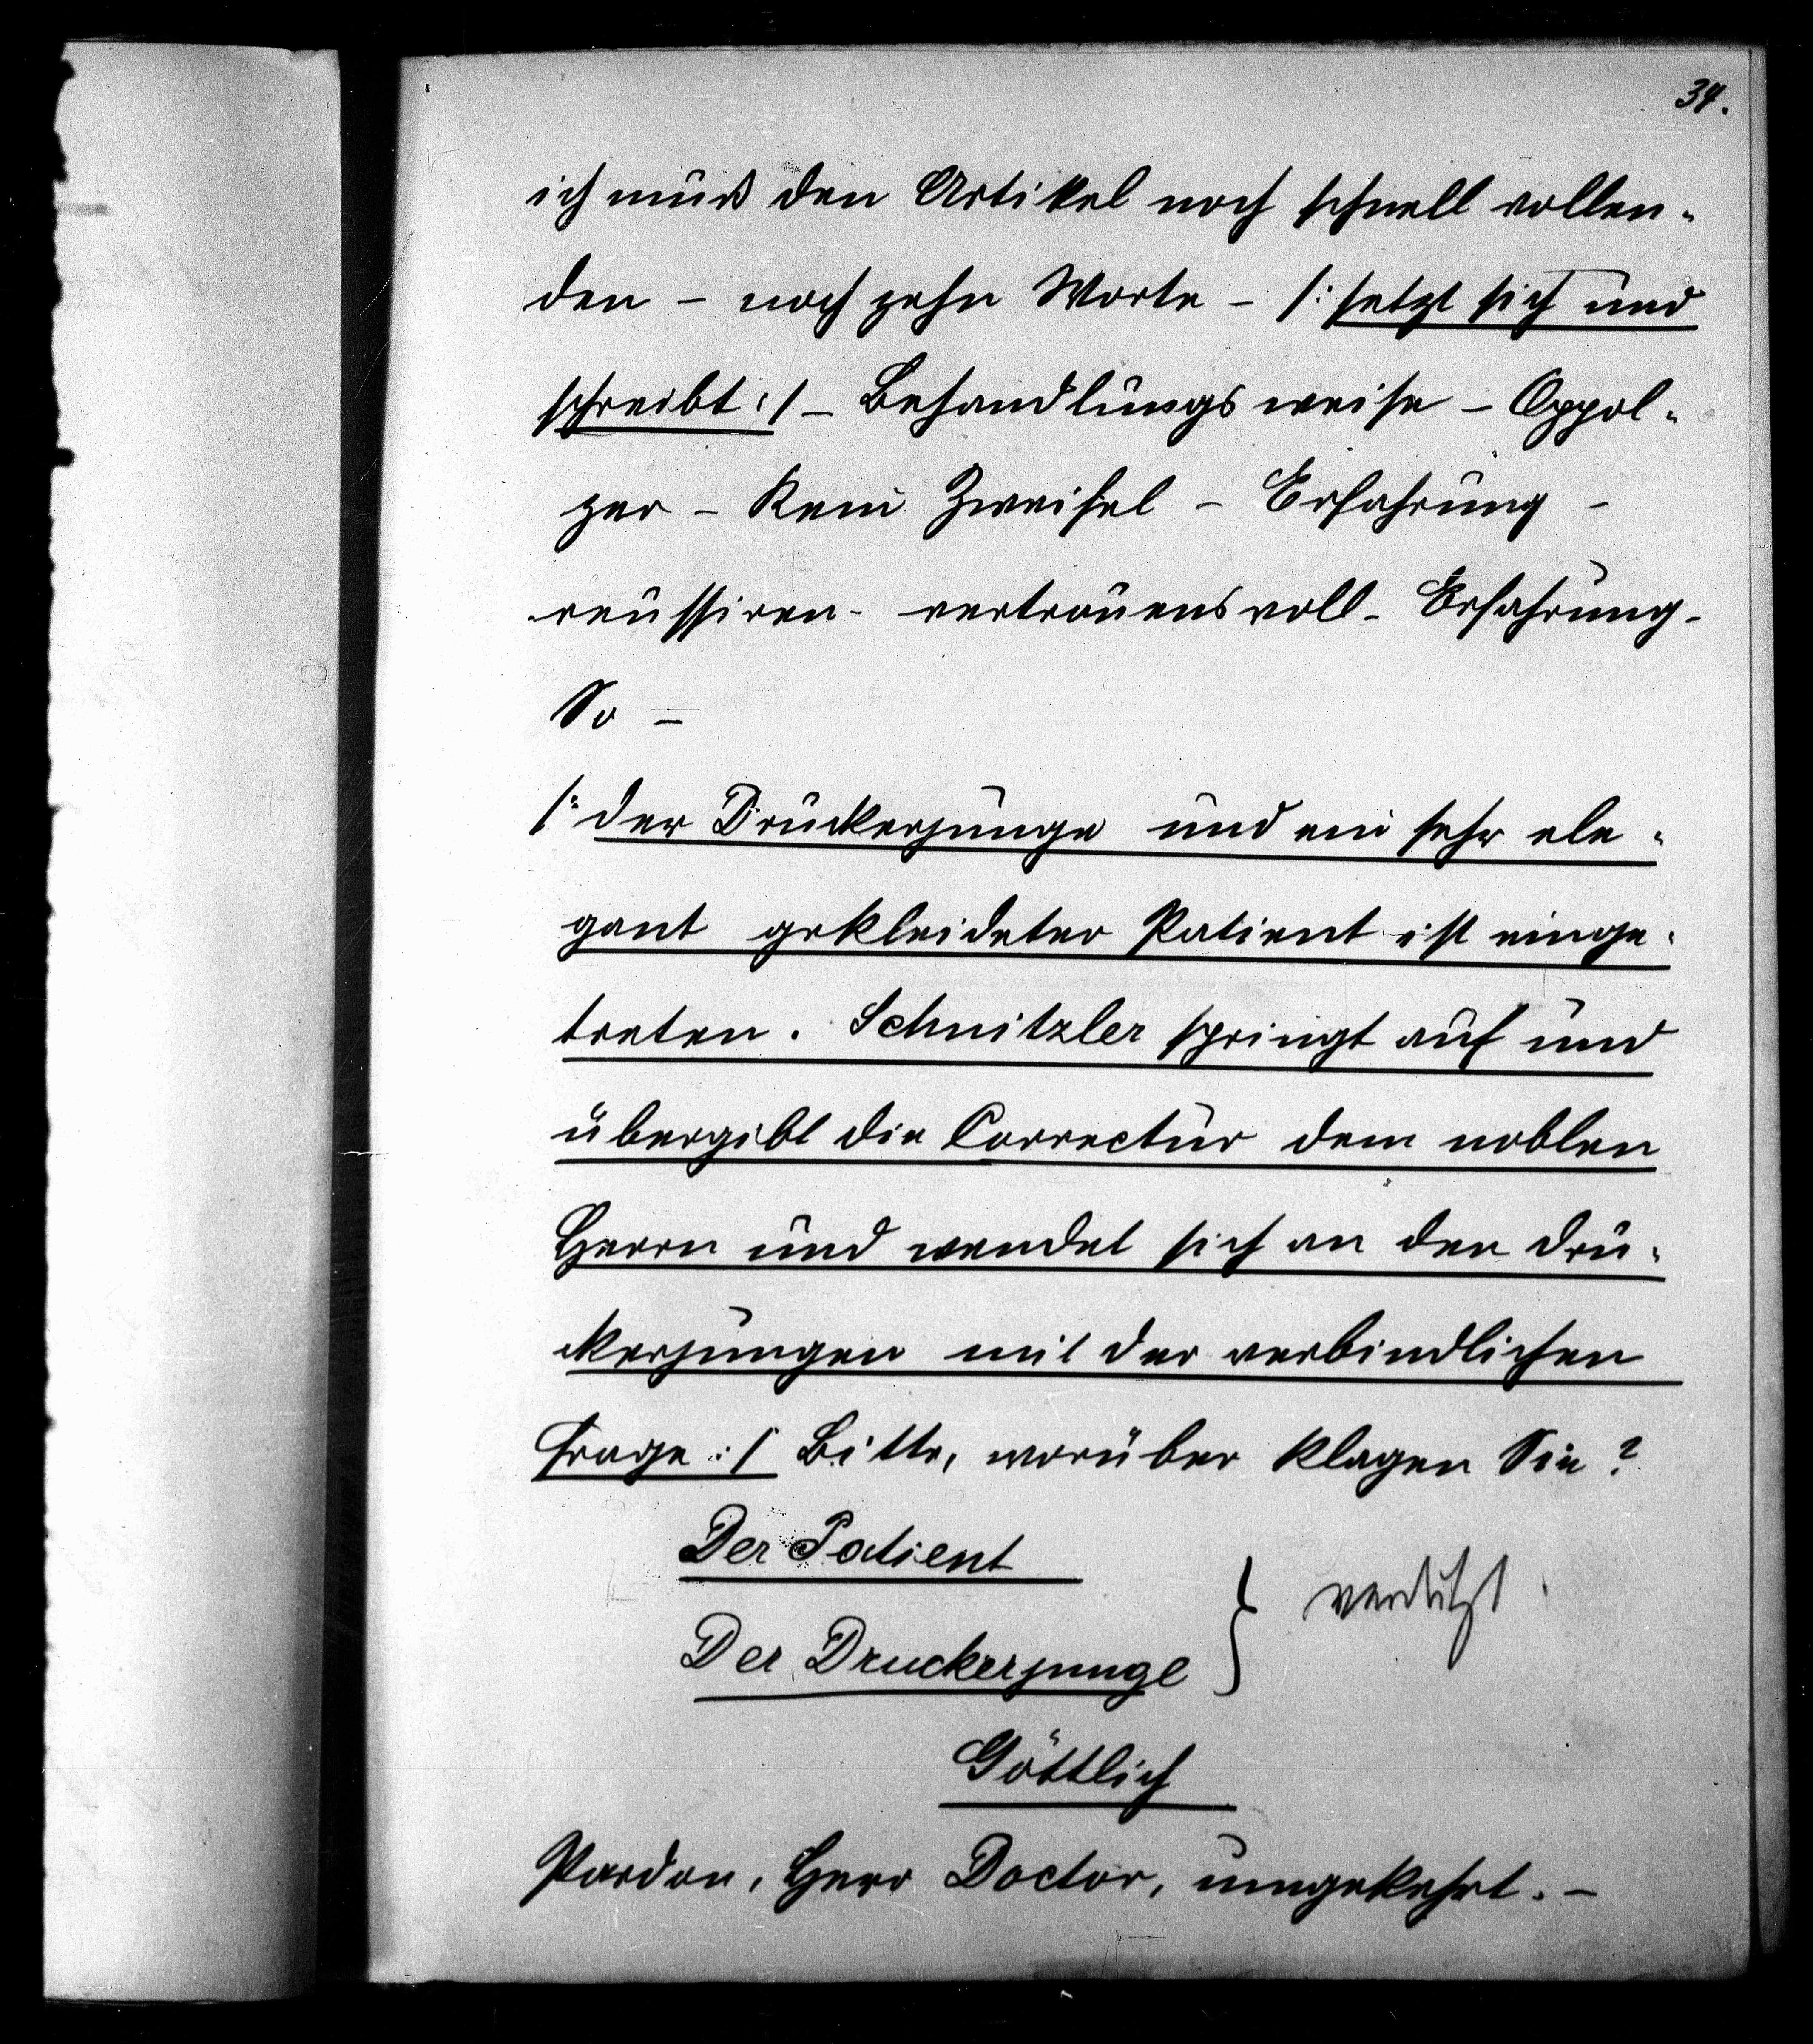 34.
ich muß den Artikel noch schnell vollen-
den – noch zehn Worte – /: setzt sich und
schreibt :/ – Behandlungsweise – Oppol-
zer – Kein Zweifel – Erfahrung –
reussiren – vertrauensvoll – Erfahrung –
So –
/: der Druckerjunge und ein sehr ele-
gant gekleideter Patient ist einge-
treten. Schnitzler springt auf und
übergibt die Correctur dem noblen
Herrn und wendet sich an den Dru-
ckerjungen mit der verbindlichen
Frage :/ Bitte, worüber klagen Sie?
Der Patient
Der Druckerjunge } verdutzt
Göttlich
Pardon, Herr Doctor, umgekehrt. –